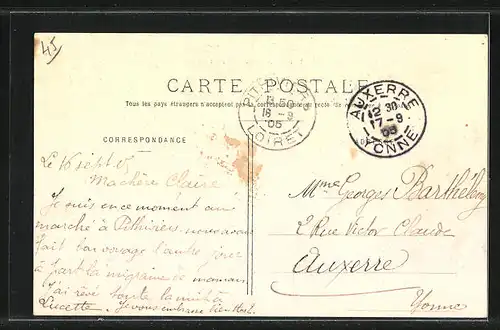 45
CARTE POSTALE
Tous les pays étrangers n'acceptent pas la correspondance au recto
CORRESPONDANCE
PITHIVIERS
11 50
16 -9
05
LOIRET
AUXERRE
12 30
17-9
05
YONNE
Le 16 sept 05
Ma chère Claire
Je suis en ce moment au
marché à Pithiviers nous avons
fait bon voyage l'autre jour
à part la migraine de maman
J'ai rêvé toute la nuit
Lucette. Je vous embrasse bien fort.
Mme Georges Barthélemy
2 Rue Victor Claude
Auxerre
Yonne